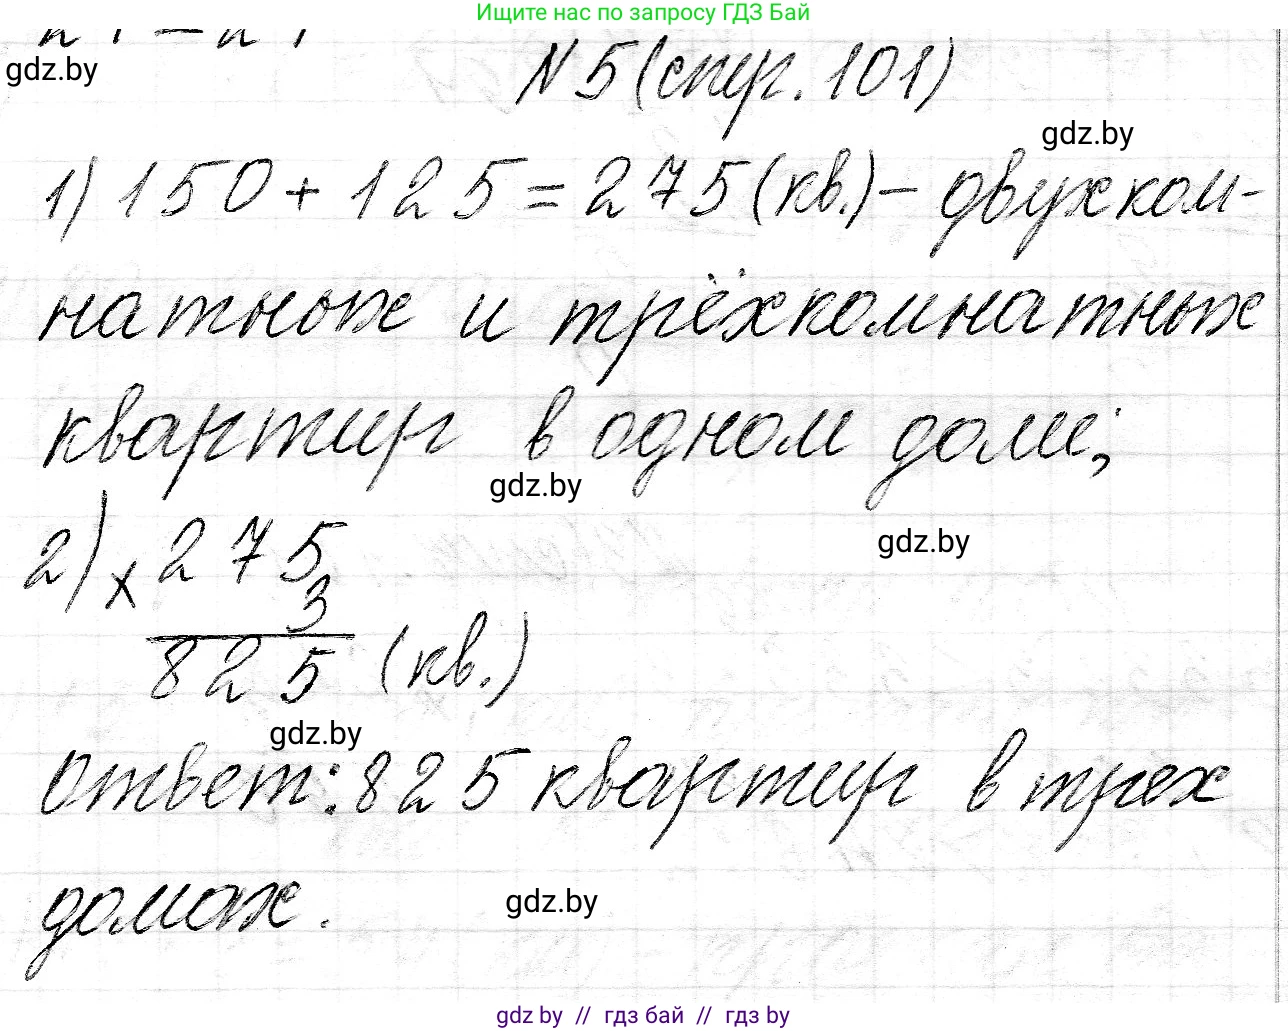 Ищите нас по запросу ГДЗ Бай
gdz.by
N 5 (стр. 101)
gdz.by
1) 150 + 125 = 275 (кв.) – двухком-
натных и трёхкомнатных
квартир в одном доме;
gdz.by
gdz.by
2) x 275
3
825 (кв.)
gdz.by
Ответ: 825 квартир в трех
домах.
gdz.by
gdz.by // гдз бай // гдз by